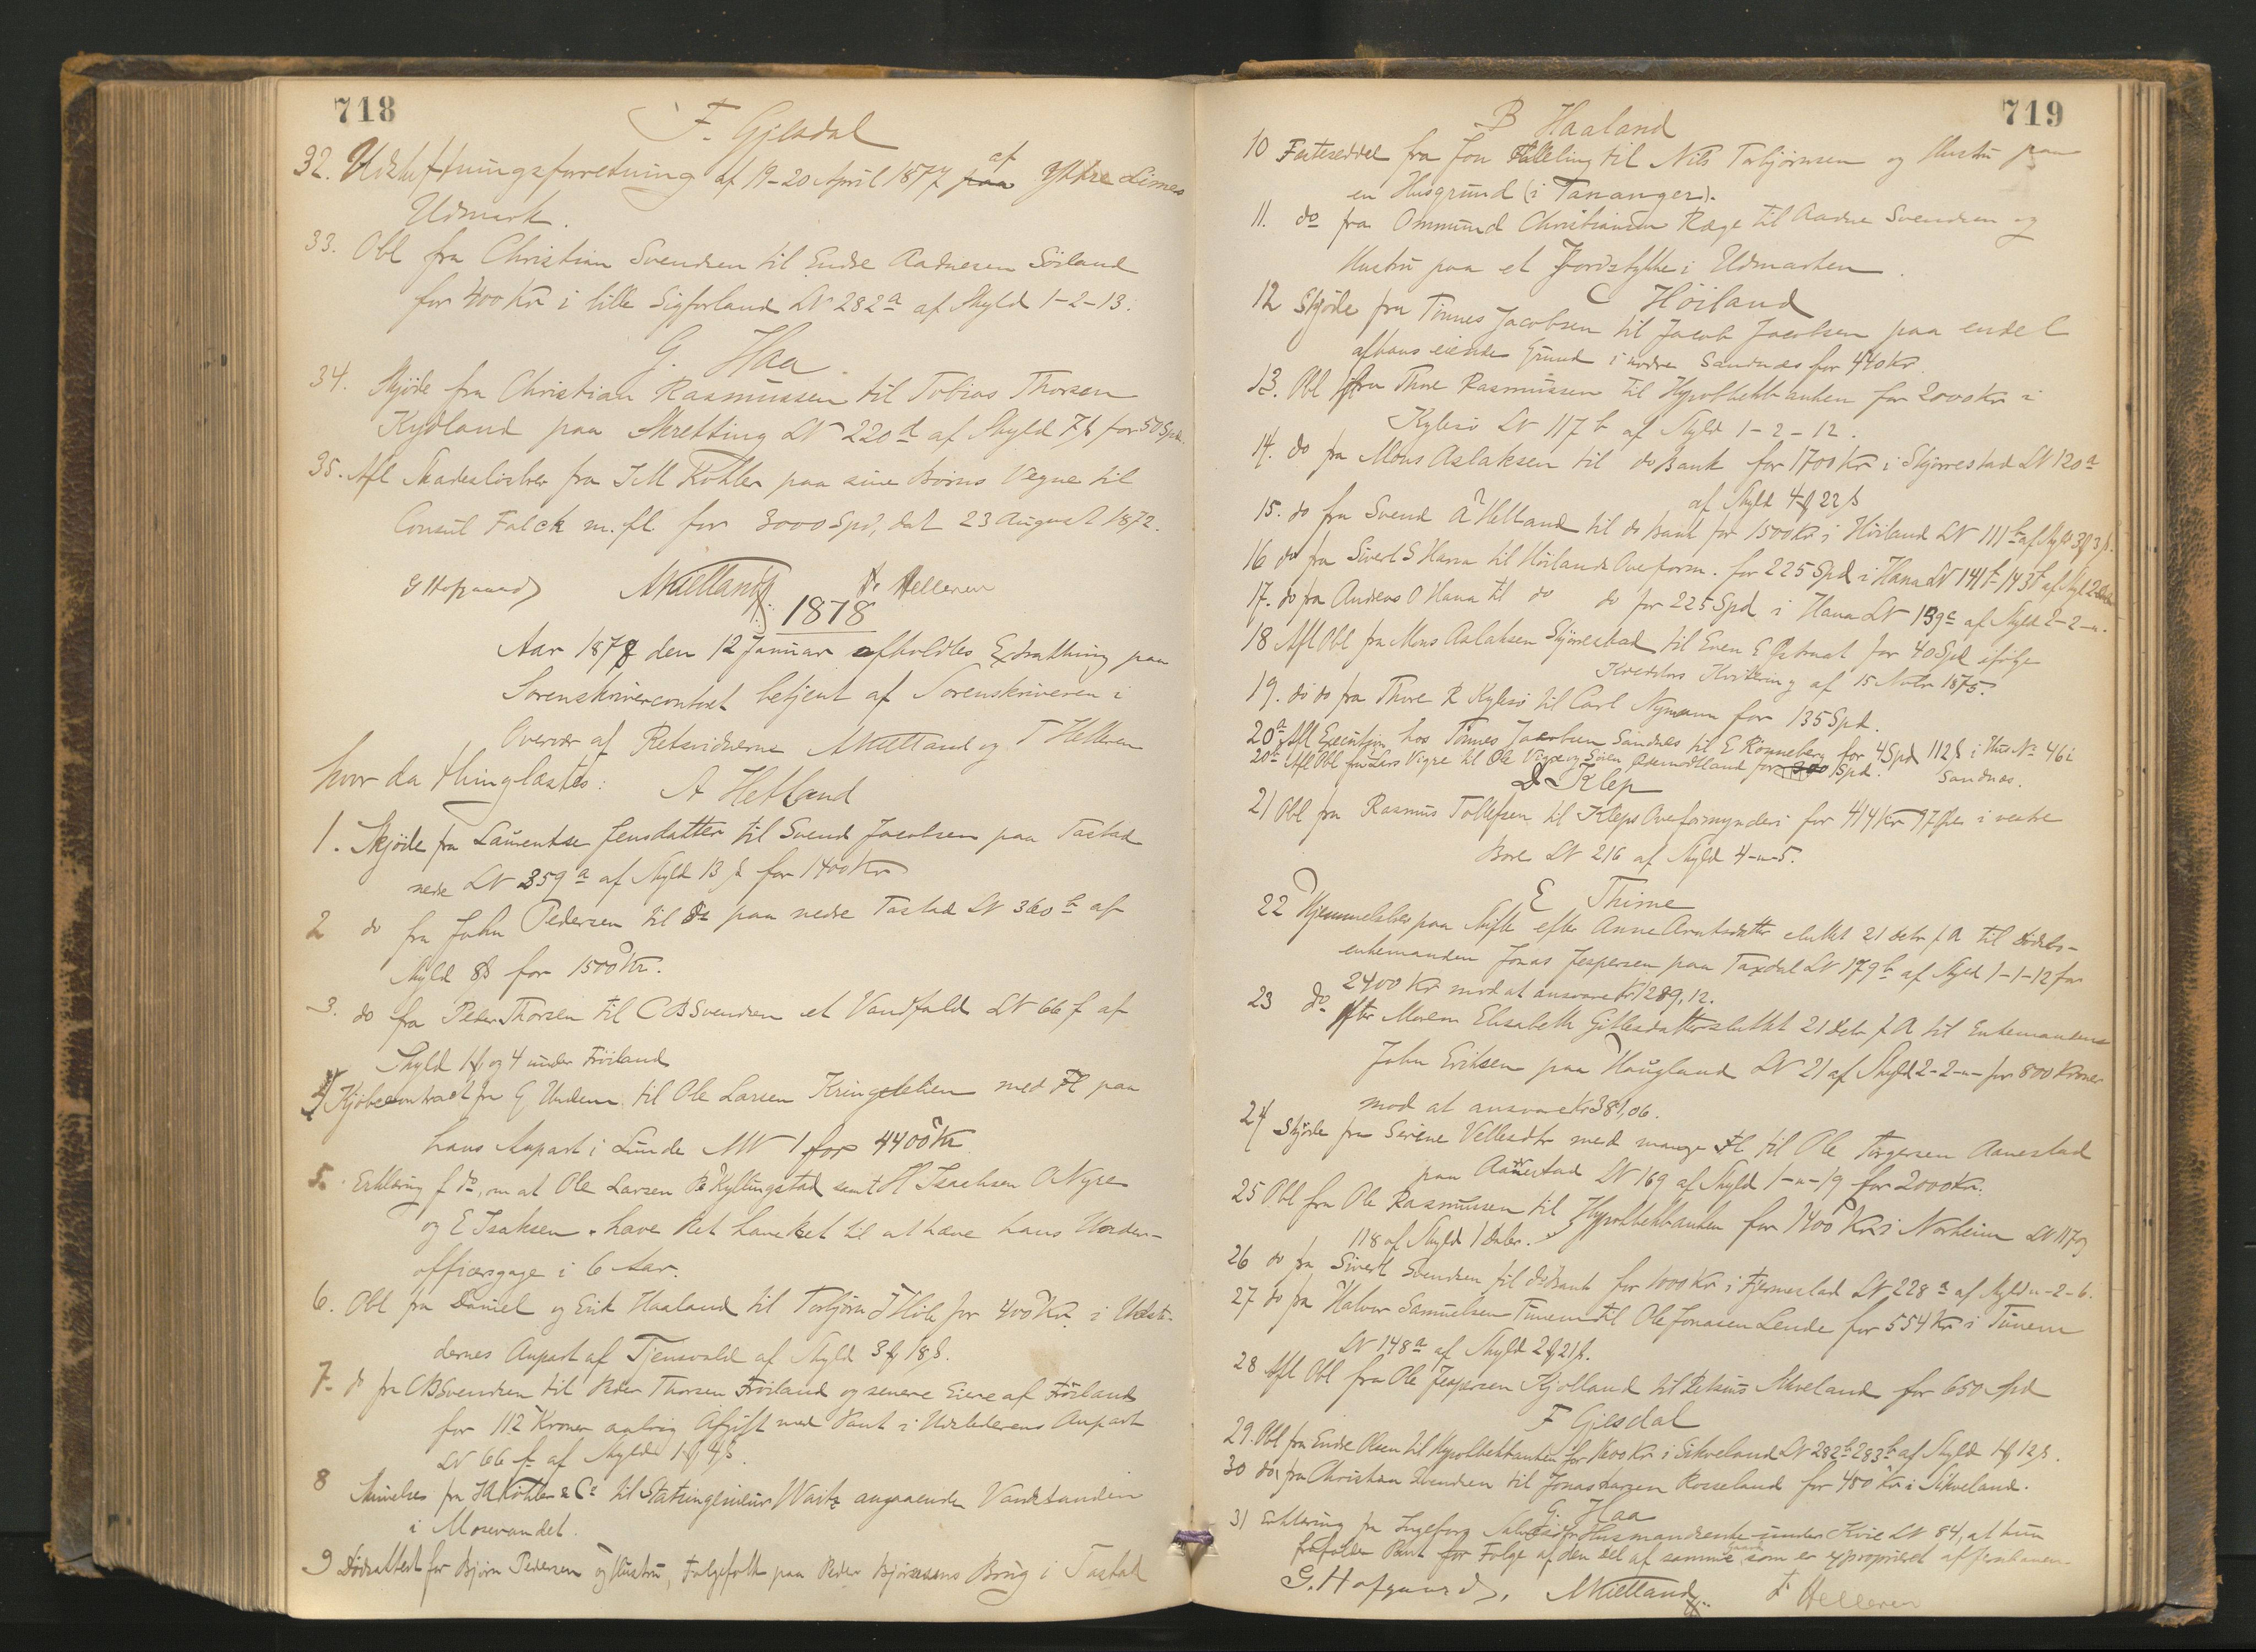 718
F. Gjesdal
32. Udskiftningsforretning af 19-20 April 1877 paa af Yttre Limes
Udmark.
33. Obl fra Christian Svendsen til Endre Aadnesen Söiland
for 400 Kr i lille Sigforland LN 282a af Skyld 1-2-13.
G. Haa
34. Skjöde fra Christian Rasmussen til Tobias Thorsen
Kydland paa Skretting LN 220d af Skyld 7 s for 50 Spd.
35. Afl Skadeslösbrev fra J M Kohler paa sine Börns Vegne til
Consul Falck m.fl. for 3000 Spd, dat 23 August 1872.
G Hofgaard AKielland T. Helleren
1878
Aar 1878 den 12 Januar afholdtes Extrathing paa
Sorenskrivercontoret betjent af Sorenskriveren i
Overvær af Retsvidnerne AKielland og T Helleren
hvor da thinglæstes: A Hetland
1. Skjöde fra Laurentse Jensdatter til Svend Jacobsen paa Tastad
nedre LN 359a af Skyld 13 s for 1400 Kr
2 do fra John Pedersen til do paa nedre Tastad LN 360b af
Skyld 8 s for 1500 Kr.
3. do fra Peder Thorsen til C B Svendsen et Vandfald LN 66 f af
Skyld 1 og 4 under Fröiland
4 Kjöbecontract fra G Undem til Ole Larsen Kringlelien med Fl paa
hans Anpart i Lunde MN 1 for 4400 Kr
5. Erklæring f do, om at Ole Larsen Kyllingstad samt H Isachsen O Nygre
og E Isaksen have Ret til at hæve hans Under-
officersgage i 6 Aar.
6. Obl fra Daniel og Erik Haaland til Torbjörn T Hole for 400 Kr. i Udste-
dernes Anpart af Tjensvold af Skyld 3 18 s.
7. do fra C B Svendsen til Peder Thorsen Fröiland og senere Eiere af Fröiland
for 112 Kroner aarlig Afgift med Pant i Udstederens Anpart
LN 66 f af Skyld 1 4 s.
8 Skrivelse fra Köhler & Co til Statsingenieur Waitz angaaende Vandstanden
i Mosevandet.
9 Dödsattest for Björn Pedersen og Hustru, Folgefolk paa Peder Björnsens Brug i Tastad
719
B Haaland
10 Festeseddel fra Jon Halleling til Nils Torbjörnsen og Hustru paa
en Husgrund (i Tananger).
11. do fra Ommund Christiansen Ræge til Aadne Svendsen og
Hustru paa et Jordstykke i Udmarken.
C Höiland
12 Skjöde fra Tönnes Jacobsen til Jacob Jacobsen paa endel
af hans eiende Grund i nordre Sandnæs for 440 Kr.
13. Obl fra Thore Rasmussen til Hypothekbanken for 2000 Kr i
Kylesö LN 117 b af Skyld 1-2-12.
14. do fra Mons Aslaksen til do Bank for 1700 Kr i Skjörrestad LN 120a
af Skyld 4 22 s
15. do fra Svend A Helland til do Bank for 1500 Kr i Höiland LN 111b af Skyld 3 3 s.
16 do fra Sivert S Hana til Höilands Overform. for 225 Spd i Hana LN 141b-143b af Skyld 2
17. do fra Andreas O Hana til do do for 225 Spd i Hana LN 139a af Skyld 2-2-"-
18 Afl Obl fra Mons Aslaksen Skjörrestad til Even E Østraat for 40 Spd ifölge
Kreditors Kvittering af 15 Novbr 1875.
19. do do fra Thore R Kylesö til Carl Nymann for 135 Spd.
20a Afl Execution hos Tönnes Jacobsen Sandnes til E Rönneberg for 4 Spd 112 s i Hus No 46 i
Sandnæs.
20b Afl Obl fra Lars Vigre til Ole Vigre og Sören Aasmodtland for 200 Spd.
D Klep
21 Obl fra Rasmus Tollefsen til Kleps Overformynderi for 414 Kr 97 Øre i vestre
Bore LN 216 af Skyld 4-"-5.
E Thime
22 Hjemmelsbrev paa Skifte efter Anne Arntsdatter sluttet 21 Decbr f. A til
enkemanden Jonas Jespersen paa Taxdal LN 179b af Skyld 1-1-12 for
2400 Kr mod at ansvare Kr 1289,12.
23 do efter Maren Elisabeth Gillesdatter sluttet 21 Decbr f A til Enkemanden
John Eriksen paa Haugland LN 21 af Skyld 2-2-"- for 800 Kroner
mod at ansvare Kr 381,06.
24 Skjöde fra Serine Vellesdtr med mange Fl til Ole Torgersen Aanestad
paa Aanestad LN 169 af Skyld 1-"-19 for 2000 Kr.
25 Obl fra Ole Rasmussen til Hypothekbanken for 1400 Kr i Norheim LN 117 og
118 af Skyld 1 Daler.
26 do fra Sivert Svendsen til do Bank for 1000 Kr i Fjermestad LN 228a af Skyld "-2-6.
27 do fra Halvor Samuelsen Tunem til Ole Jonasen Lende for 554 Kr i Tunem
LN 148a af Skyld 2 21 s.
28 Afl Obl fra Ole Jespersen Kjolland til Retsius Skveland for 650 Spd
F Gjesdal
29. Obl fra Endre Olsen til Hypothekbanken for 1600 Kr i Sikveland LN 282b-283b af Skyld 1 12 s.
30 do fra Christian Svendsen til Jonas Larsen Rosseland for 480 Kr i Sikveland.
G. Haa
31 Erklæring fra Ingeborg Salvesdtr Husmandsenke under Kvie LN 84, at hun
frafalder Pant for Folge af den Del af samme Gaard som er exproprieret af Jernbanen
G. Hofgaard, AKielland T Helleren